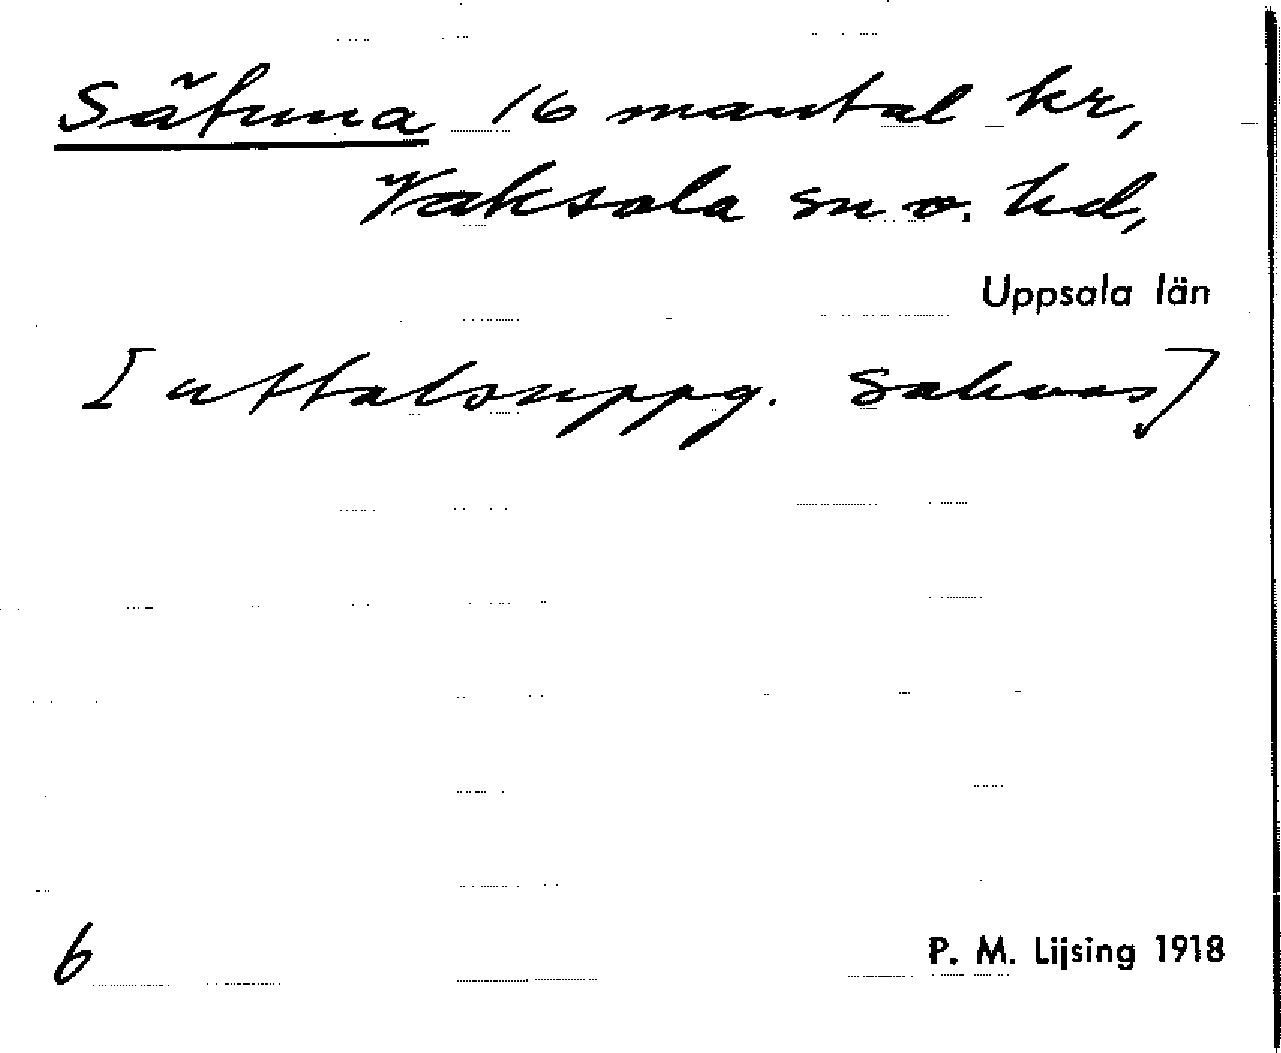 Sätuna 16 mantal kr,
Vaksala sn o. hd,
Uppsala län
[uttalsuppg. saknas]
6
P. M. Lijsing 1918